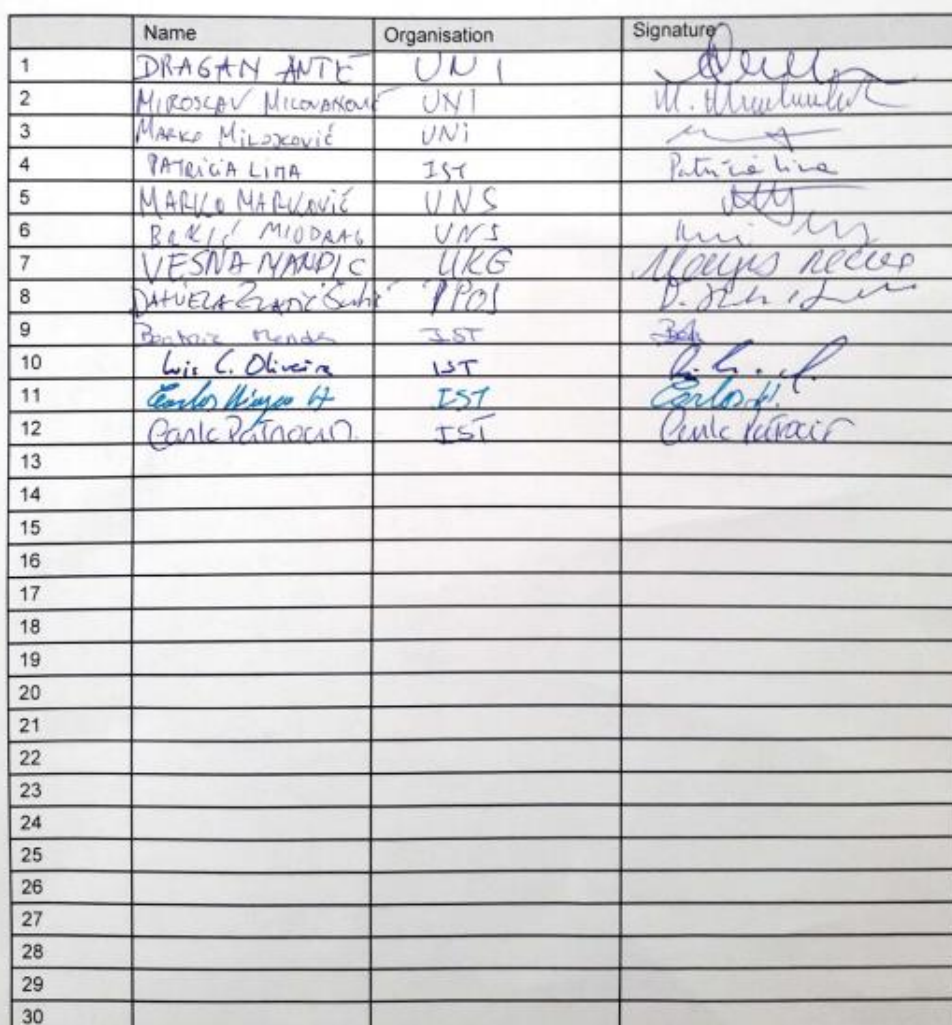 Name Organisation Signature
1 DRAGAN ANTIĆ UNI
2 MIROSLAV MILOVANOVIĆ UNI M.
3 MARKO MILOJKOVIĆ UNi
4 PATRICIA LIMA IST Patricia Lima
5 MARKO MARKOVIĆ UNS
6 BRKIĆ MIODRAG UNS
7 VESNA MANDIC UKG
8 DANIELA PPOS D.
9 Beatriz Mendes IST
10 Luis C. Oliveira IST
11 Carlos IST Carlos H.
12 IST
13
14
15
16
17
18
19
20
21
22
23
24
25
26
27
28
29
30